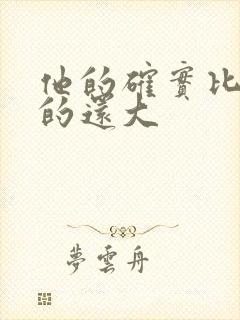 他的確實比
的還大
夢雲舟